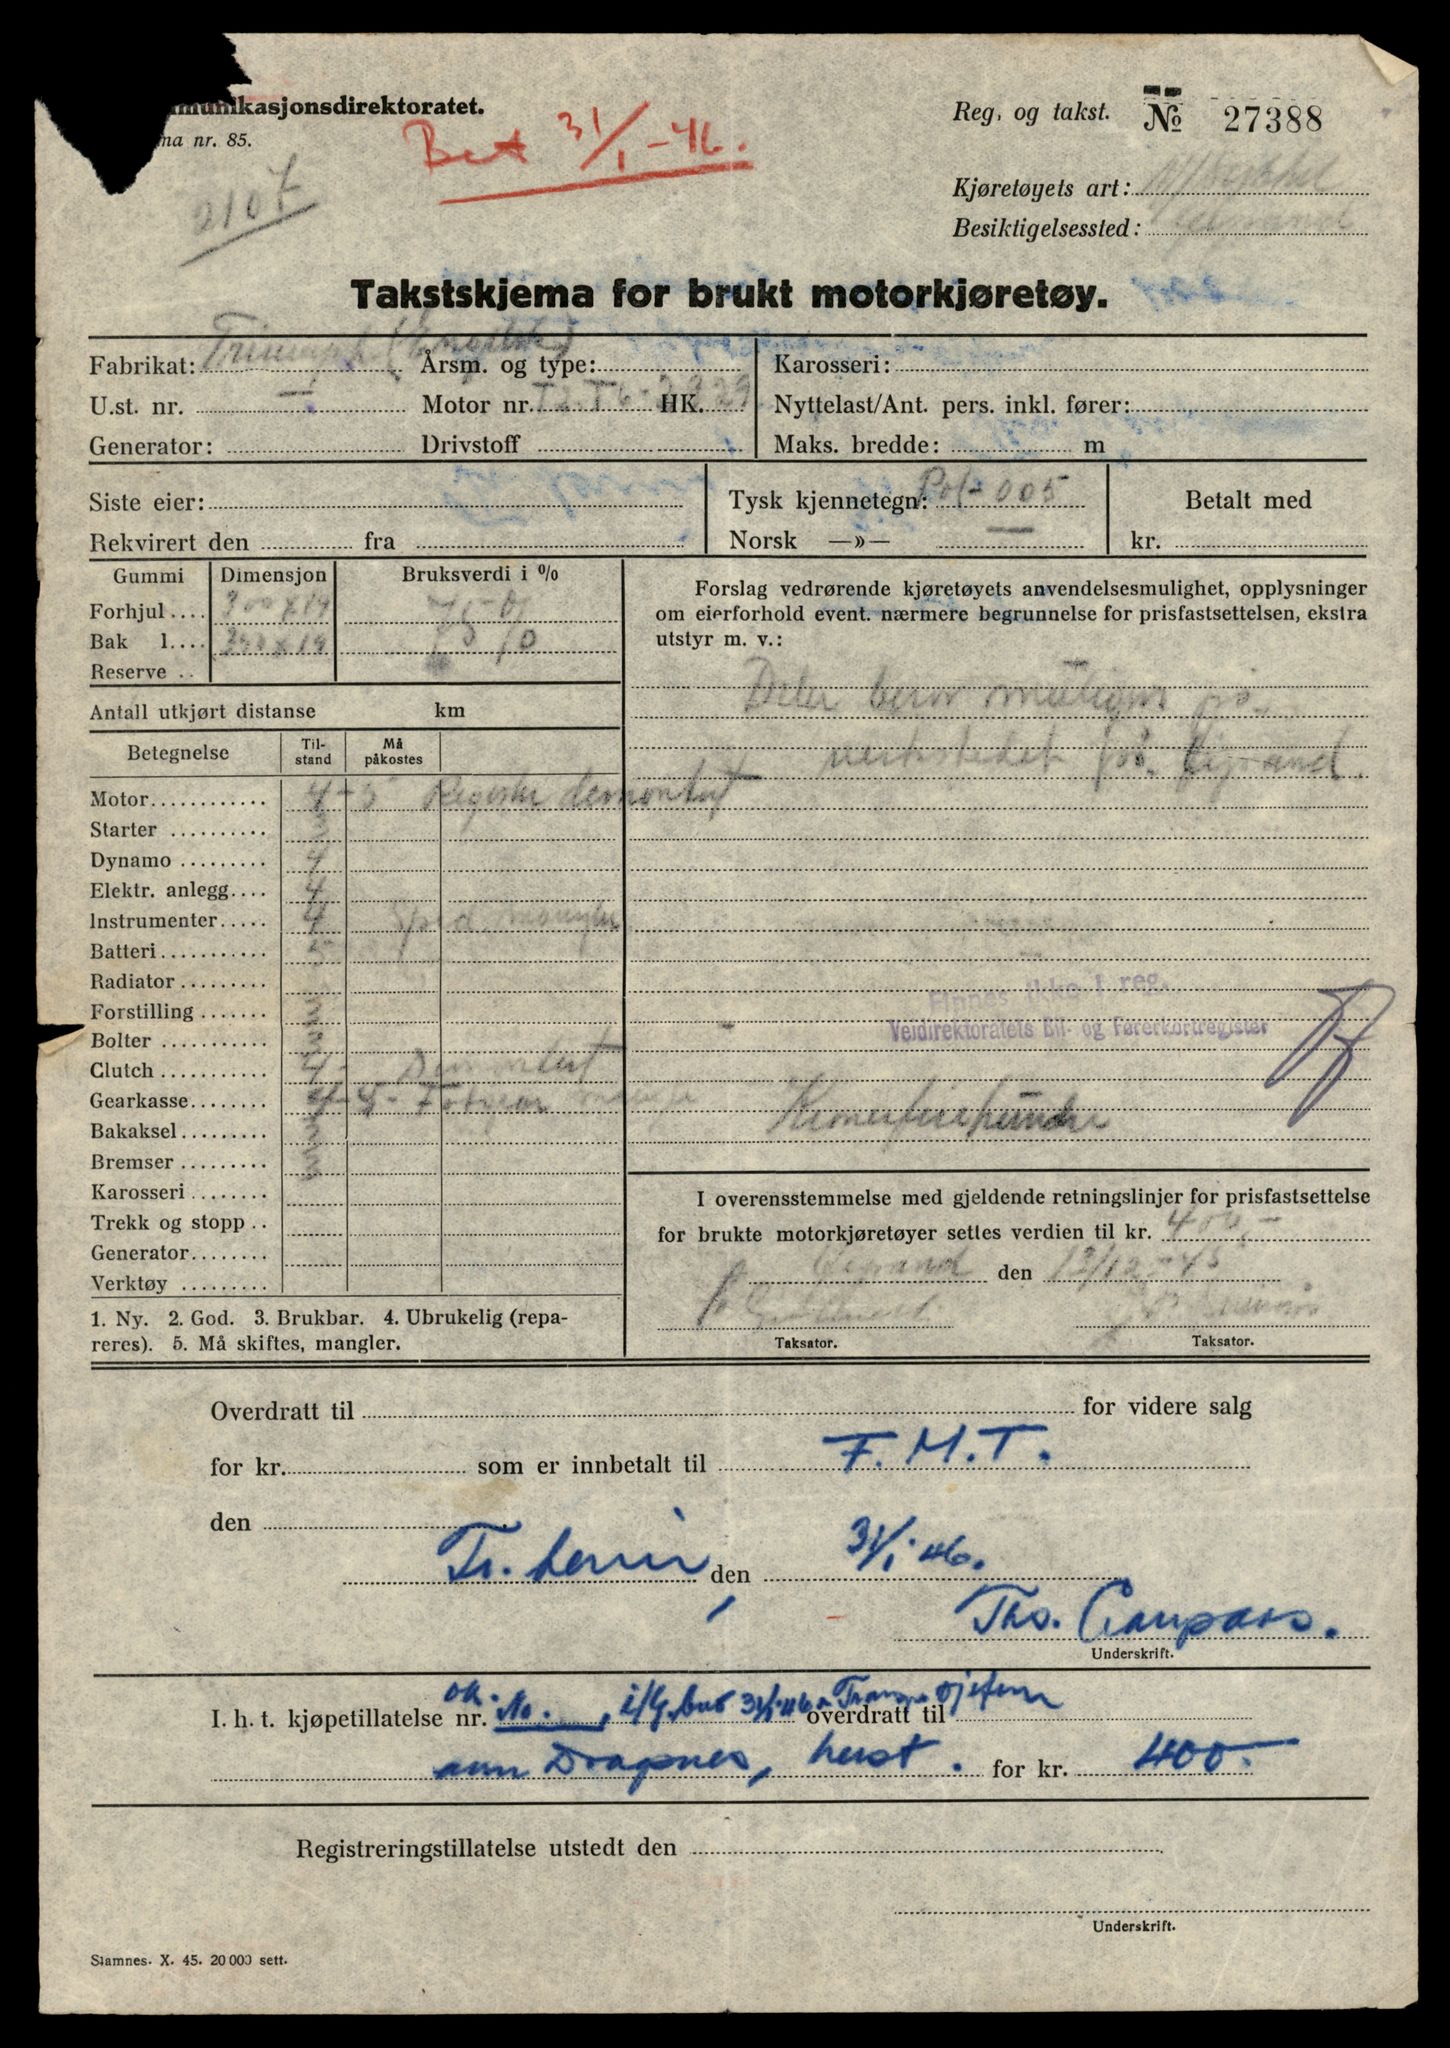 munikasjonsdirektoratet.
ma nr. 85.
2107
Bet 31/1-46.
Reg. og takst. № 27388
Kjøretøyets art:
Besiktigelsessted:
Takstskjema for brukt motorkjøretøy.
Fabrikat: Triumph (Engelsk) Årsm. og type: Karosseri:
U.st. nr. — Motor nr. HK. Nyttelast/Ant. pers. inkl. fører:
Generator: Drivstoff Maks. bredde: m
Siste eier: Tysk kjennetegn: Pol-005 Betalt med
Rekvirert den fra Norsk —»— — kr.
Gummi Dimensjon Bruksverdi i %
Forhjul 300x19 75 %
Bak 1 350x19 75 %
Reserve
Forslag vedrørende kjøretøyets anvendelsesmulighet, opplysninger
om eierforhold event. nærmere begrunnelse for prisfastsettelsen, ekstra
utstyr m. v.:
Deler
verkstedet på
Antall utkjørt distanse km
Betegnelse Til-stand Må påkostes
Motor 4-5 Register demontert
Starter 3
Dynamo 4
Elektr. anlegg 4
Instrumenter 4 Sped. mangler
Batteri 5
Radiator
Forstilling 3
Bolter 3
Clutch 4- Demontert
Gearkasse 4-5- Fotgear
Bakaksel 3
Bremser 3
Karosseri
Trekk og stopp
Generator
Verktøy
Finnes ikke i reg.
Veidirektoratets Bil- og Førerkortregister
Kronerfirehundre
1. Ny. 2. God. 3. Brukbar. 4. Ubrukelig (repa-
reres). 5. Må skiftes, mangler.
I overensstemmelse med gjeldende retningslinjer for prisfastsettelse
for brukte motorkjøretøyer settes verdien til kr. 400,-
den 12/12-45
Taksator. Taksator.
Overdratt til for videre salg
for kr. som er innbetalt til F.M.T.
den
Tr.heim, den 31/1-46.
Tho.
Underskrift.
I. h. t. kjøpetillatelse nr. No. 31/1-46 overdratt til
Dragsnes, for kr. 400.-
Registreringstillatelse utstedt den
Underskrift.
Stamnes. X. 45. 20 000 sett.